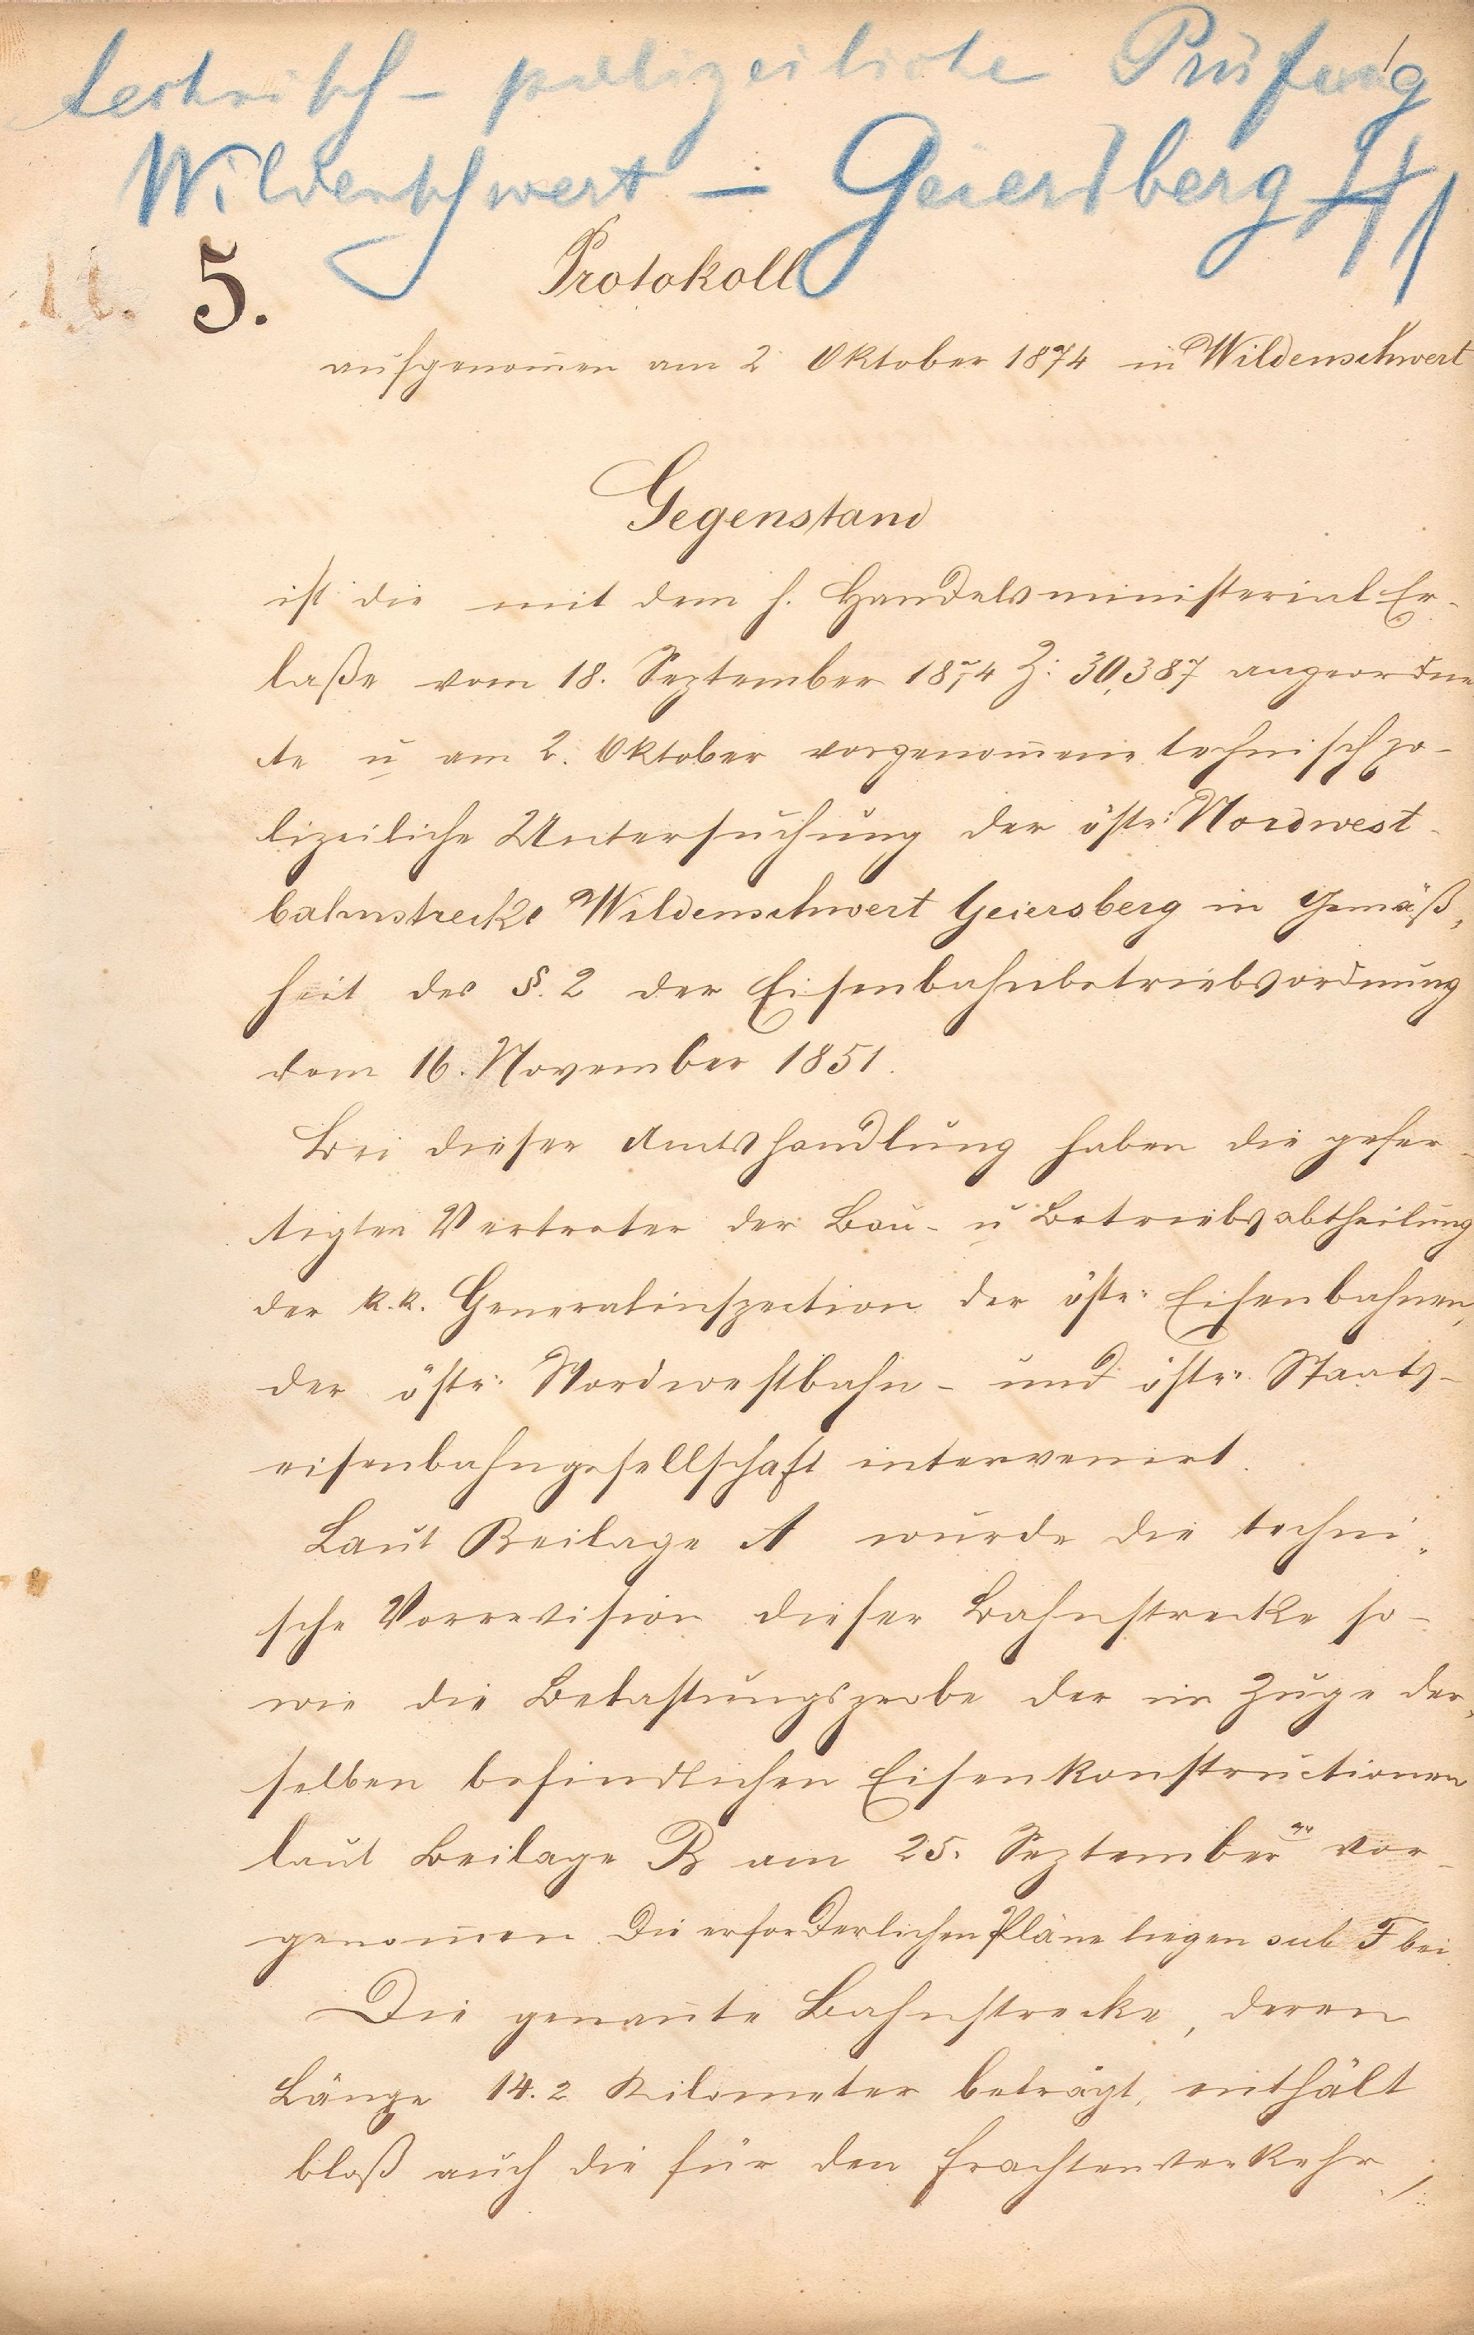 technisch-polizeiliche Prüfung
Wildenschwert - Geiersberg
5.
Protokoll
aufgenom̄en am 2 Oktober 1874 in Wildenschwert
Gegenstand
ist die mit dem h. Handelsministerial Er-
laße vom 18. September 1874 Z: 30,387 angeordne
te u am 2. Oktober vorgenom̄ene technisch po-
lizeiliche Untersuchung der östr: Nordwest-
bahnstrecke Wildenschwert Geiersberg in Gemäß,
heit des §. 2 der Eisenbahnbetriebsordnung
vom 16. November 1851.
Bei dieser Amtshandlung haben die gefer-
tigten Vertreter der Bau- u Betriebsabtheilung
der k.k. Generalinspection der östr: Eisenbahnen,
der östr: Nordwestbahn- und östr: Staats-
eisenbahngesellschaft intervenirt.
Laut Beilage A wurde die techni„
sche Vorrevision dieser Bahnstrecke so-
wie die Belastungsprobe der im Zuge der„
selben befindlichen Eisenkonstructionen
laut Beilage B am 25. September vor-
genom̄en. Die erforderlichen Pläne liegen sub F bei.
Die genan̄te Bahnstrecke, deren
Länge 14.2 Kilometer beträgt, enthält
bloß auch die für den Frachtenverkehr